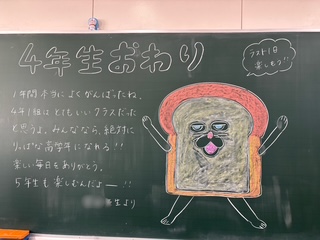 4年生おわり
ラスト1日
楽しもう!!
1年間本当によくがんばったね。
4年1組はとてもいいクラスだった
と思うよ。みんななら、絶対に
りっぱな高学年になれる!!
楽しい毎日をありがとう。
5年生も楽しむんだよー!!
生より